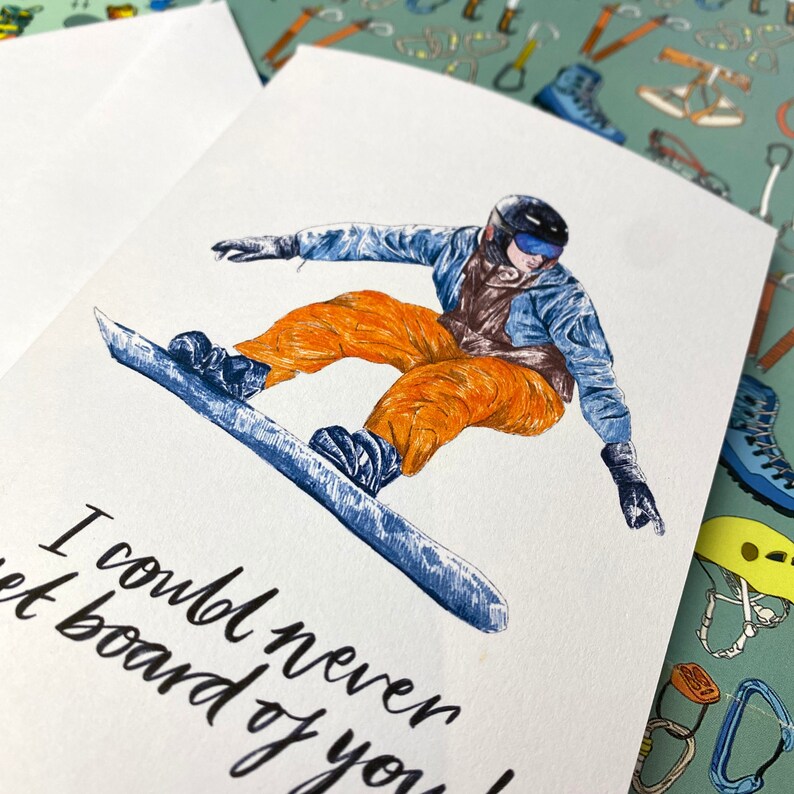 I could never
get board of you!